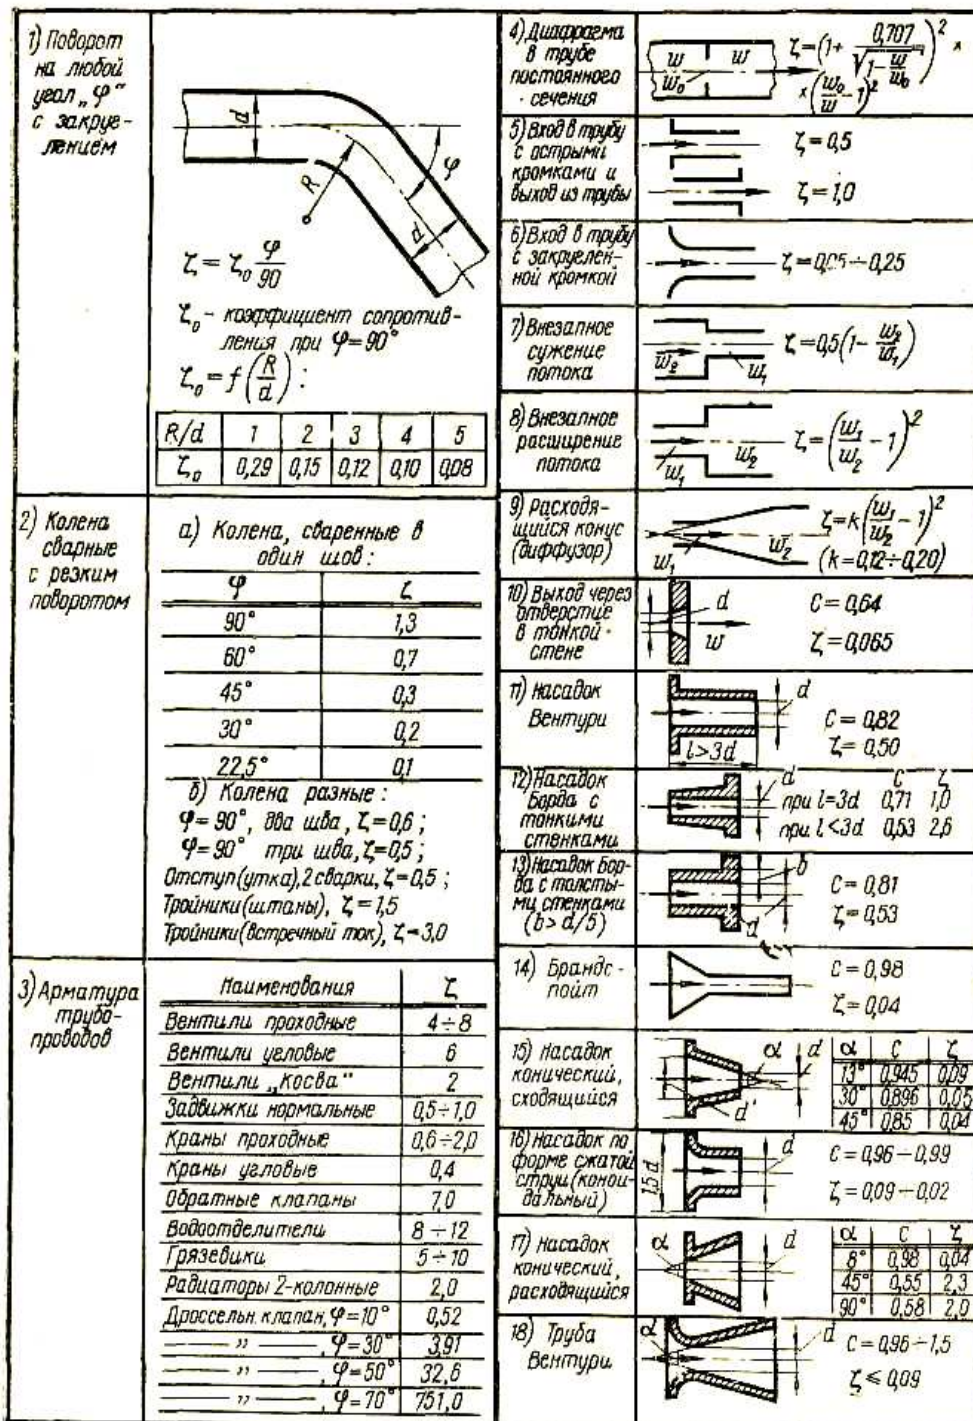 1) Поворот
на любой
угол „φ“
с закруг-
лением
d
R
φ
d
ζ = ζ₀ φ/90
ζ₀ - коэффициент сопротив-
ления при φ=90°
ζ₀ = f(R/d):
R/d 1 2 3 4 5
ζ₀ 0,29 0,15 0,12 0,10 0,08
2) Колена
сварные
с резким
поворотом
а) Колена, сваренные в
один шов:
φ ζ
90° 1,3
60° 0,7
45° 0,3
30° 0,2
22,5° 0,1
б) Колена разные:
φ=90°, два шва, ζ=0,6;
φ=90° три шва, ζ=0,5;
Отступ(утка), 2 сварки, ζ=0,5;
Тройники(штаны), ζ=1,5
Тройники(встречный ток), ζ=3,0
3) Арматура
трубо-
проводов
Наименования ζ
Вентили проходные 4÷8
Вентили угловые 6
Вентили „Косва“ 2
Задвижки нормальные 0,5÷1,0
Краны проходные 0,6÷2,0
Краны угловые 0,4
Обратные клапаны 7,0
Водоотделители 8÷12
Грязевики 5÷10
Радиаторы 2-колонные 2,0
Дроссельн. клапан, φ=10° 0,52
— „ —, φ=30° 3,91
— „ —, φ=50° 32,6
— „ —, φ=70° 751,0
4) Диафрагма
в трубе
постоянного
сечения
w w
w₀
ζ=(1+ 0,707/√(1-w/w₀))² ×
×(w₀/w -1)²
5) Вход в трубу
с острыми
кромками и
выход из трубы
ζ=0,5
ζ=1,0
6) Вход в трубу
с закруглен-
ной кромкой
ζ=0,05÷0,25
7) Внезапное
сужение
потока
w₂ w₁
ζ=0,5(1- w₂/w₁)
8) Внезапное
расширение
потока
w₁ w₂
ζ=(w₁/w₂ -1)²
9) Расходя-
щийся конус
(диффузор)
w₁ w₂
ζ=k(w₁/w₂ -1)²
(k=0,12÷0,20)
10) Выход через
отверстие
в тонкой
стене
d
w
C=0,64
ζ=0,065
11) Насадок
Вентури
d
l>3d
C=0,82
ζ=0,50
12) Насадок
Борда с
тонкими
стенками
d C ζ
при l=3d 0,71 1,0
при l<3d 0,53 2,6
13) Насадок Бор-
да с толсты-
ми стенками
(b>d/5)
b
d
C=0,81
ζ=0,53
14) Брандс-
пойт
C=0,98
ζ=0,04
15) Насадок
конический,
сходящийся
α d
d'
α C ζ
13° 0,945 0,09
30° 0,896 0,05
45° 0,85 0,04
16) Насадок по
форме сжатой
струи (конои-
дальный)
1,5d
d
C=0,96÷0,99
ζ=0,09÷0,02
17) Насадок
конический,
расходящийся
α d
α C ζ
8° 0,98 0,04
45° 0,55 2,3
90° 0,58 2,0
18) Труба
Вентури
α d
C=0,96÷1,5
ζ≤0,09